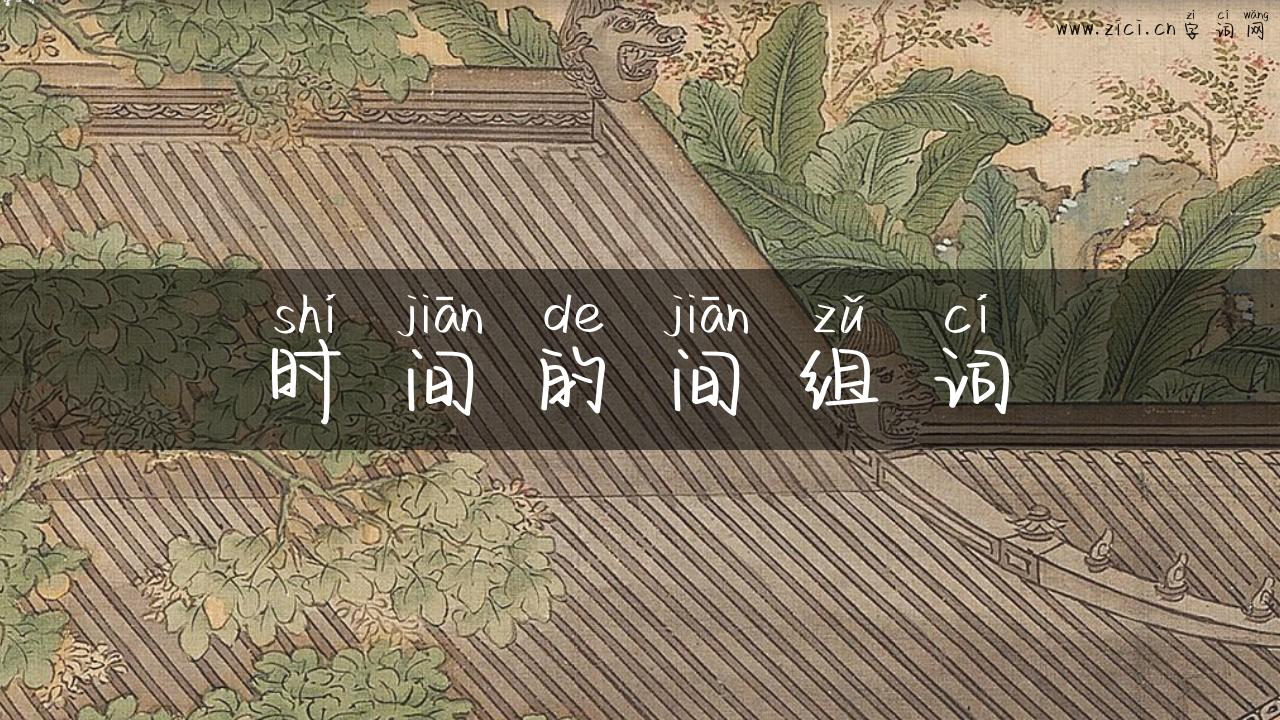 zì cí wǎng
www.zici.cn 字 词 网
shí jiān de jiān zǔ cí
时 间 的 间 组 词